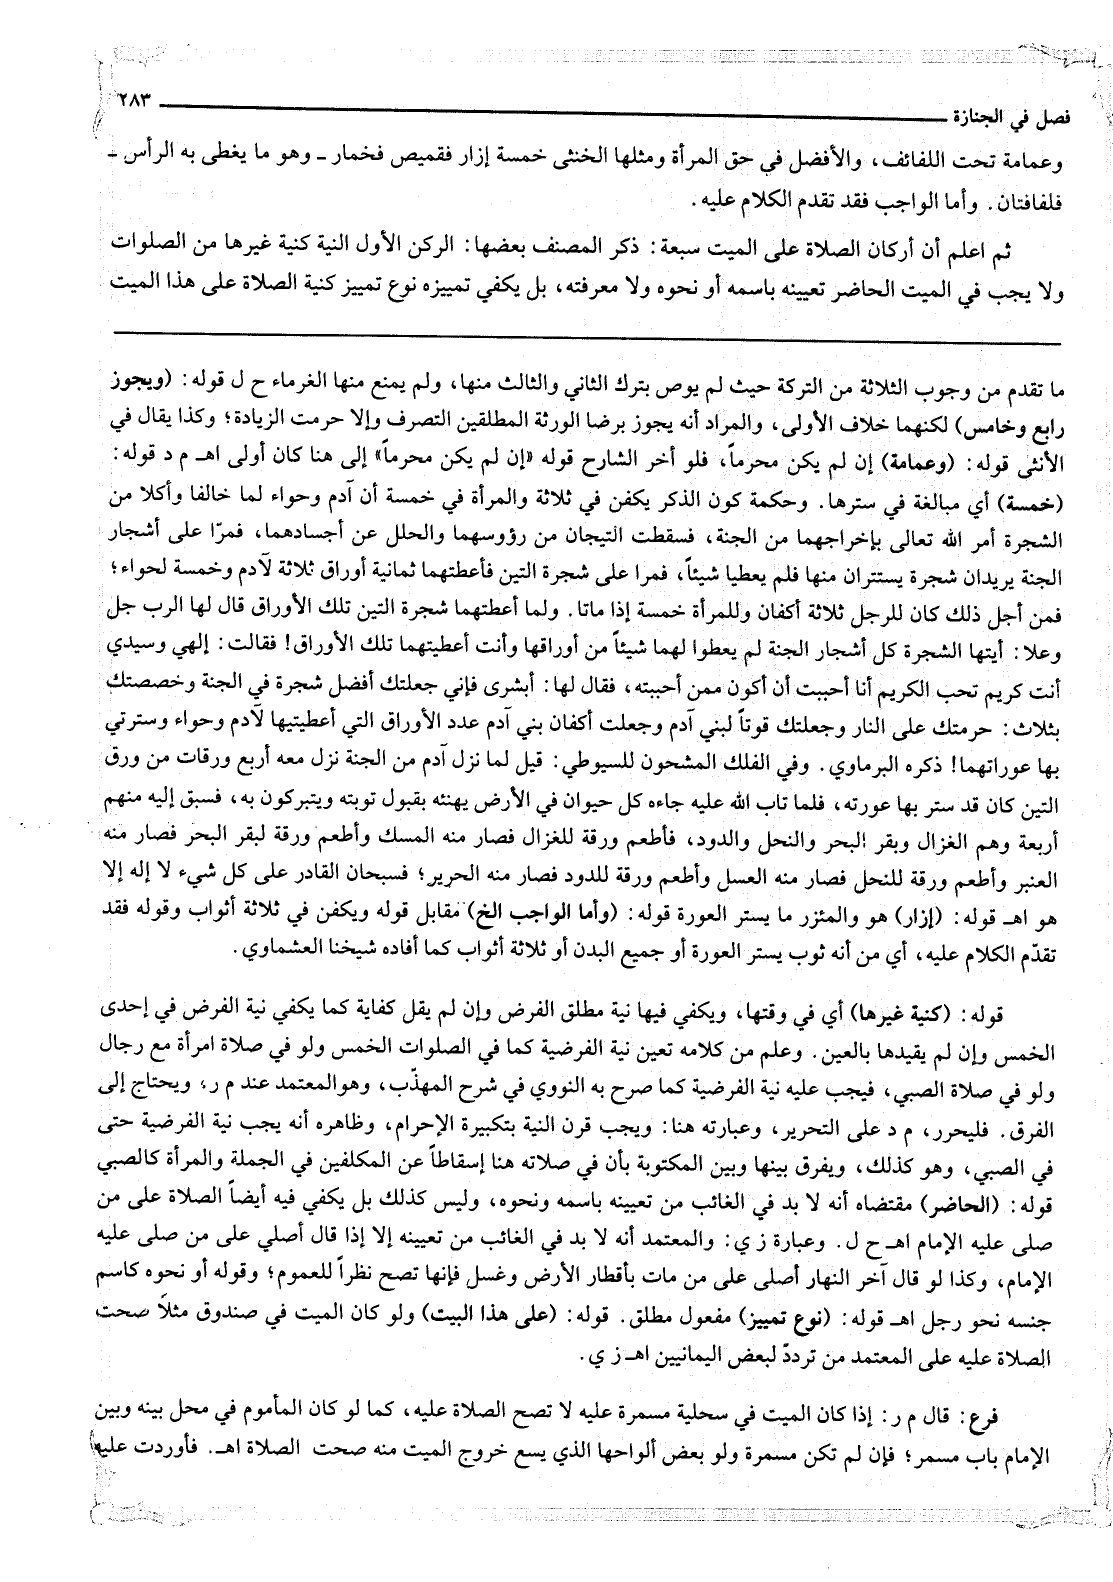 فصل في الجنازة ٢٨٣
وعمامة تحت اللفائف، والأفضل في حق المرأة ومثلها الخنثى خمسة إزار فقميص فخمار ـ وهو ما يغطى به الرأس ـ
فلفافتان. وأما الواجب فقد تقدم الكلام عليه.
ثم اعلم أن أركان الصلاة على الميت سبعة: ذكر المصنف بعضها: الركن الأول النية كنية غيرها من الصلوات
ولا يجب في الميت الحاضر تعيينه باسمه أو نحوه ولا معرفته، بل يكفي تمييزه نوع تمييز كنية الصلاة على هذا الميت
ما تقدم من وجوب الثلاثة من التركة حيث لم يوص بترك الثاني والثالث منها، ولم يمنع منها الغرماء ح ل قوله: (ويجوز
رابع وخامس) لكنهما خلاف الأولى، والمراد أنه يجوز برضا الورثة المطلقين التصرف وإلا حرمت الزيادة؛ وكذا يقال في
الأنثى قوله: (وعمامة) إن لم يكن محرماً، فلو أخر الشارح قوله «إن لم يكن محرماً» إلى هنا كان أولى اهـ م د قوله:
(خمسة) أي مبالغة في سترها. وحكمة كون الذكر يكفن في ثلاثة والمرأة في خمسة أن آدم وحواء لما خالفا وأكلا من
الشجرة أمر الله تعالى بإخراجهما من الجنة، فسقطت التيجان من رؤوسهما والحلل عن أجسادهما، فمرّا على أشجار
الجنة يريدان شجرة يستتران منها فلم يعطيا شيئاً، فمرا على شجرة التين فأعطتهما ثمانية أوراق ثلاثة لآدم وخمسة لحواء؛
فمن أجل ذلك كان للرجل ثلاثة أكفان وللمرأة خمسة إذا ماتا. ولما أعطتهما شجرة التين تلك الأوراق قال لها الرب جل
وعلا: أيتها الشجرة كل أشجار الجنة لم يعطوا لهما شيئاً من أوراقها وأنت أعطيتهما تلك الأوراق! فقالت: إلهي وسيدي
أنت كريم تحب الكريم أنا أحببت أن أكون ممن أحببته، فقال لها: أبشرى فإني جعلتك أفضل شجرة في الجنة وخصصتك
بثلاث: حرمتك على النار وجعلتك قوتاً لبني آدم وجعلت أكفان بني آدم عدد الأوراق التي أعطيتيها لآدم وحواء وسترتي
بها عوراتهما! ذكره البرماوي. وفي الفلك المشحون للسيوطي: قيل لما نزل آدم من الجنة نزل معه أربع ورقات من ورق
التين كان قد ستر بها عورته، فلما تاب الله عليه جاءه كل حيوان في الأرض يهنئه بقبول توبته ويتبركون به، فسبق إليه منهم
أربعة وهم الغزال وبقر البحر والنحل والدود، فأطعم ورقة للغزال فصار منه المسك وأطعم ورقة لبقر البحر فصار منه
العنبر وأطعم ورقة للنحل فصار منه العسل وأطعم ورقة للدود فصار منه الحرير؛ فسبحان القادر على كل شيء لا إله إلا
هو اهـ قوله: (إزار) هو والمئزر ما يستر العورة قوله: (وأما الواجب الخ) مقابل قوله ويكفن في ثلاثة أثواب وقوله فقد
تقدّم الكلام عليه، أي من أنه ثوب يستر العورة أو جميع البدن أو ثلاثة أثواب كما أفاده شيخنا العشماوي.
قوله: (كنية غيرها) أي في وقتها، ويكفي فيها نية مطلق الفرض وإن لم يقل كفاية كما يكفي نية الفرض في إحدى
الخمس وإن لم يقيدها بالعين. وعلم من كلامه تعين نية الفرضية كما في الصلوات الخمس ولو في صلاة امرأة مع رجال
ولو في صلاة الصبي، فيجب عليه نية الفرضية كما صرح به النووي في شرح المهذّب، وهوالمعتمد عند م ر، ويحتاج إلى
الفرق. فليحرر، م د على التحرير، وعبارته هنا: ويجب قرن النية بتكبيرة الإحرام، وظاهره أنه يجب نية الفرضية حتى
في الصبي، وهو كذلك، ويفرق بينها وبين المكتوبة بأن في صلاته هنا إسقاطاً عن المكلفين في الجملة والمرأة كالصبي
قوله: (الحاضر) مقتضاه أنه لا بد في الغائب من تعيينه باسمه ونحوه، وليس كذلك بل يكفي فيه أيضاً الصلاة على من
صلى عليه الإمام اهـ ح ل. وعبارة ز ي: والمعتمد أنه لا بد في الغائب من تعيينه إلا إذا قال أصلي على من صلى عليه
الإمام، وكذا لو قال آخر النهار أصلى على من مات بأقطار الأرض وغسل فإنها تصح نظراً للعموم؛ وقوله أو نحوه كاسم
جنسه نحو رجل اهـ قوله: (نوع تمييز) مفعول مطلق. قوله: (على هذا البيت) ولو كان الميت في صندوق مثلاً صحت
الصلاة عليه على المعتمد من تردّد لبعض اليمانيين اهـ ز ي.
فرع: قال م ر: إذا كان الميت في سحلية مسمرة عليه لا تصح الصلاة عليه، كما لو كان المأموم في محل بينه وبين
الإمام باب مسمر؛ فإن لم تكن مسمرة ولو بعض ألواحها الذي يسع خروج الميت منه صحت الصلاة اهـ. فأوردت عليه